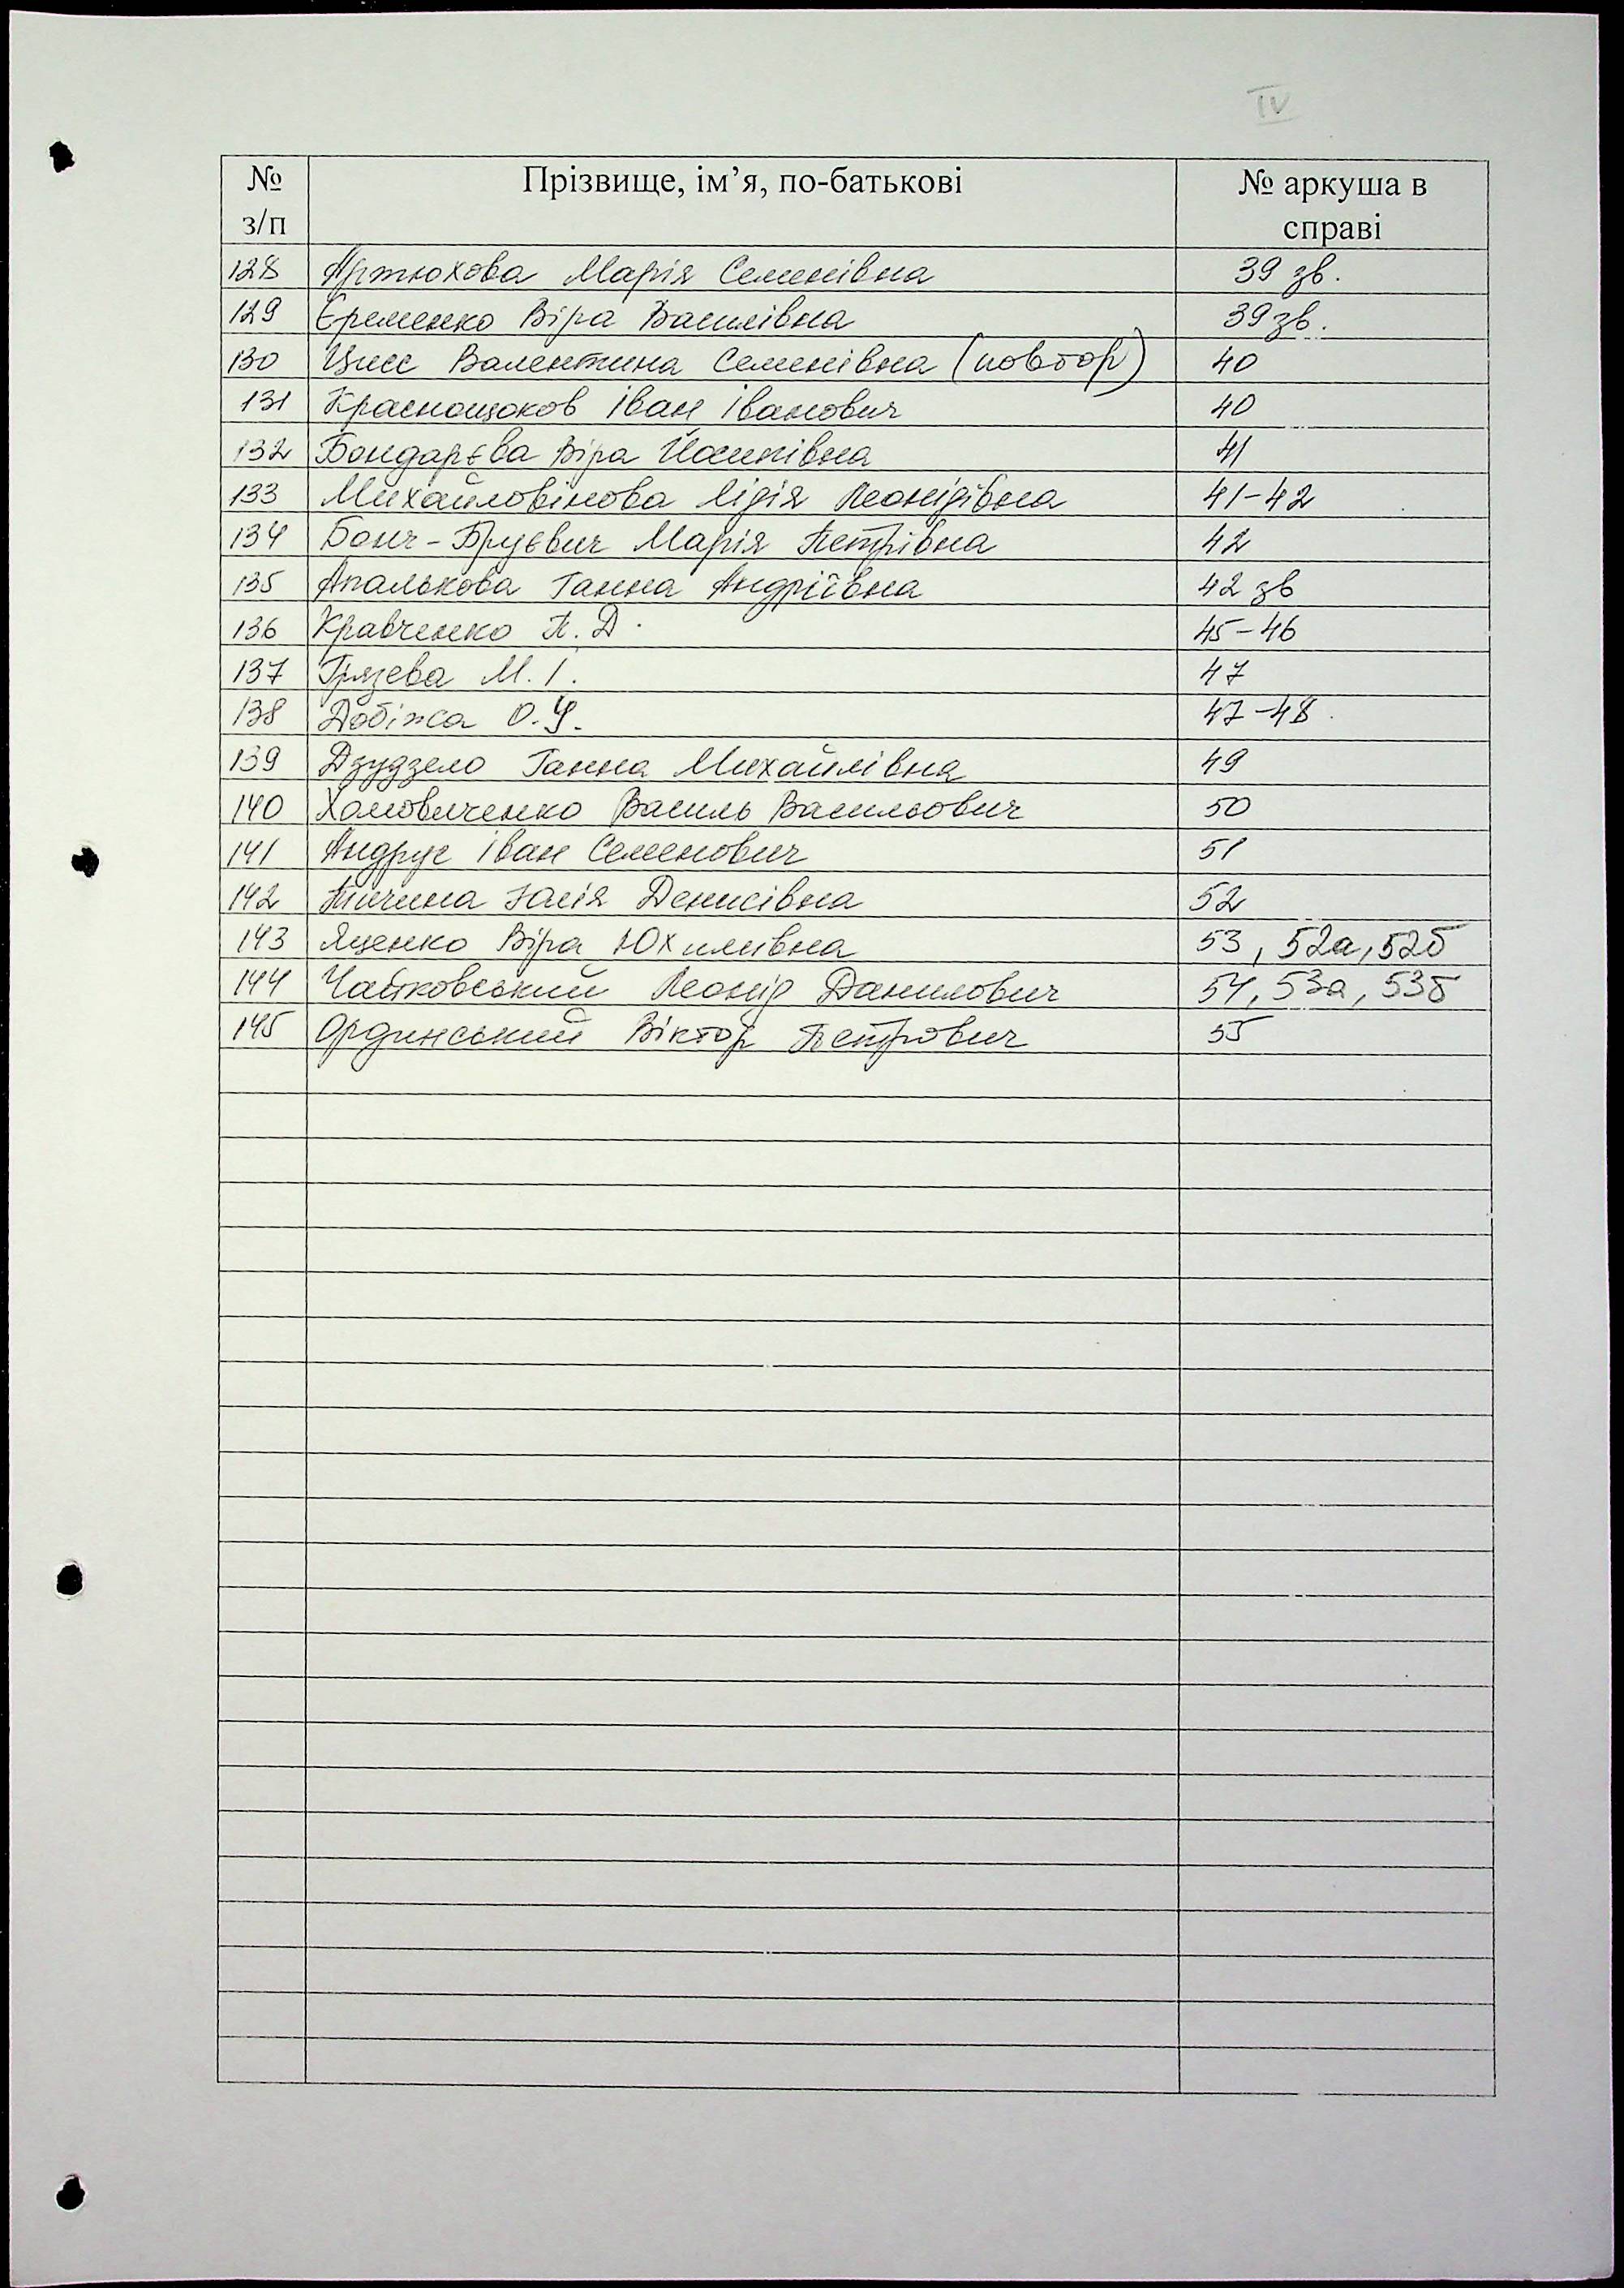 IV
№ з/п Прізвище, ім’я, по-батькові № аркуша в справі
128 Артюхова Марія Семенівна 39 зв.
129 Єременко Віра Василівна 39 зв.
130 Цисс Валентина Семенівна (повтор) 40
131 Краснощоков Іван Іванович 40
132 Бондарєва Віра Йосипівна 41
133 Михайловінова Лідія Леонідівна 41-42
134 Бонч-Бруєвич Марія Петрівна 42
135 Апалькова Ганна Андріївна 42 зв
136 Кравченко П. Д. 45-46
137 Грязева М. І. 47
138 Добіжа О. 47-48
139 Дзудзело Ганна Михайлівна 49
140 Хомовиченко Василь Васильович 50
141 Андрус Іван Семенович 51
142 Тичина Юлія Денисівна 52
143 Яценко Віра Юхимівна 53, 52а, 52б
144 Чайковський Леонід Данилович 54, 53а, 53б
145 Ординський Віктор Петрович 55